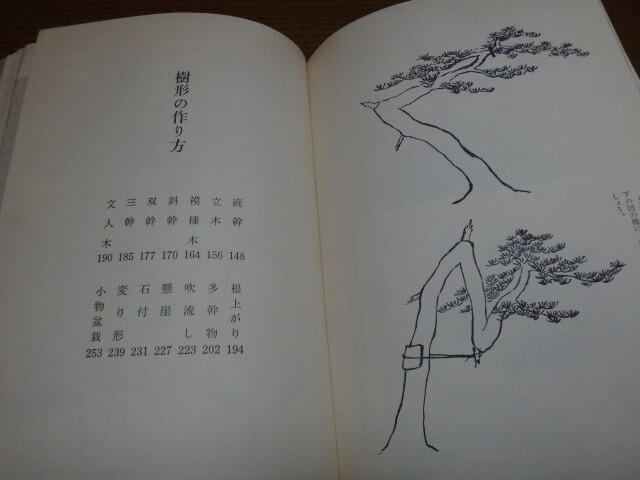 樹形の作り方
直幹 148
立木 156
模様木 164
斜幹 170
双幹 177
三幹 185
文人木 190
根上がり 194
多幹物 202
吹流し 223
懸崖 227
石付 231
変り形 239
小物盆栽 253
下の図の様に
しょう。